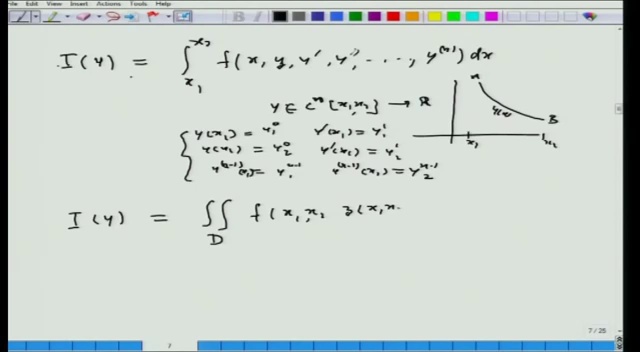 File Edit View Insert Actions Tools Help
I(y) = ∫_{x₁}^{x₂} f(x, y, y', y'', ..., y^{(n)}) dx
y ∈ C^n [x₁, x₂] → ℝ
y(x₁) = y₁^0 y'(x₁) = y₁^1
y(x₂) = y₂^0 y'(x₂) = y₂^1
y^{(n-1)}(x₁) = y₁^{n-1} y^{(n-1)}(x₂) = y₂^{n-1}
A
y(x)
B
x₁ x₂
I(y) = ∬_D f(x₁, x₂ z(x₁ x
7 / 25
7